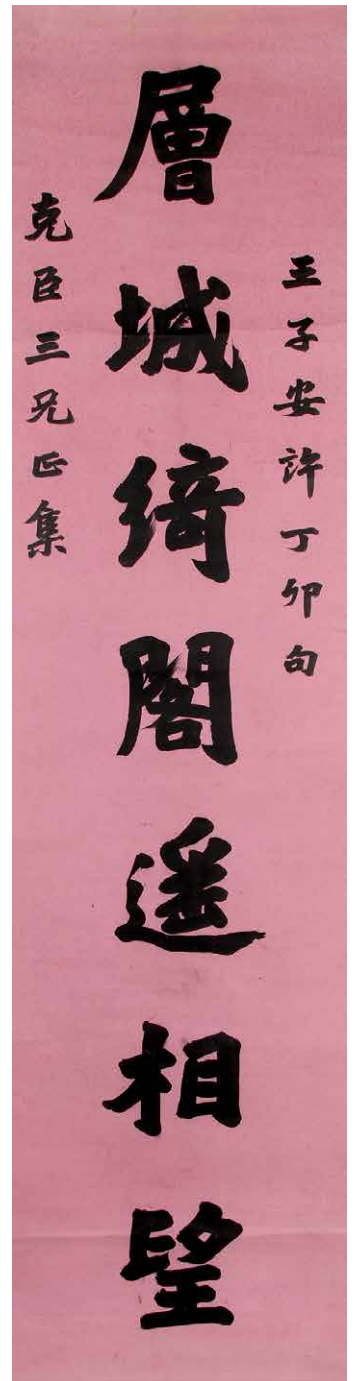 王子安許丁卯句
層城綺閣遥相望
克臣三兄正集